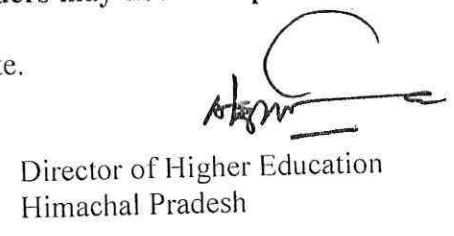 may
te.
Director of Higher Education
Himachal Pradesh